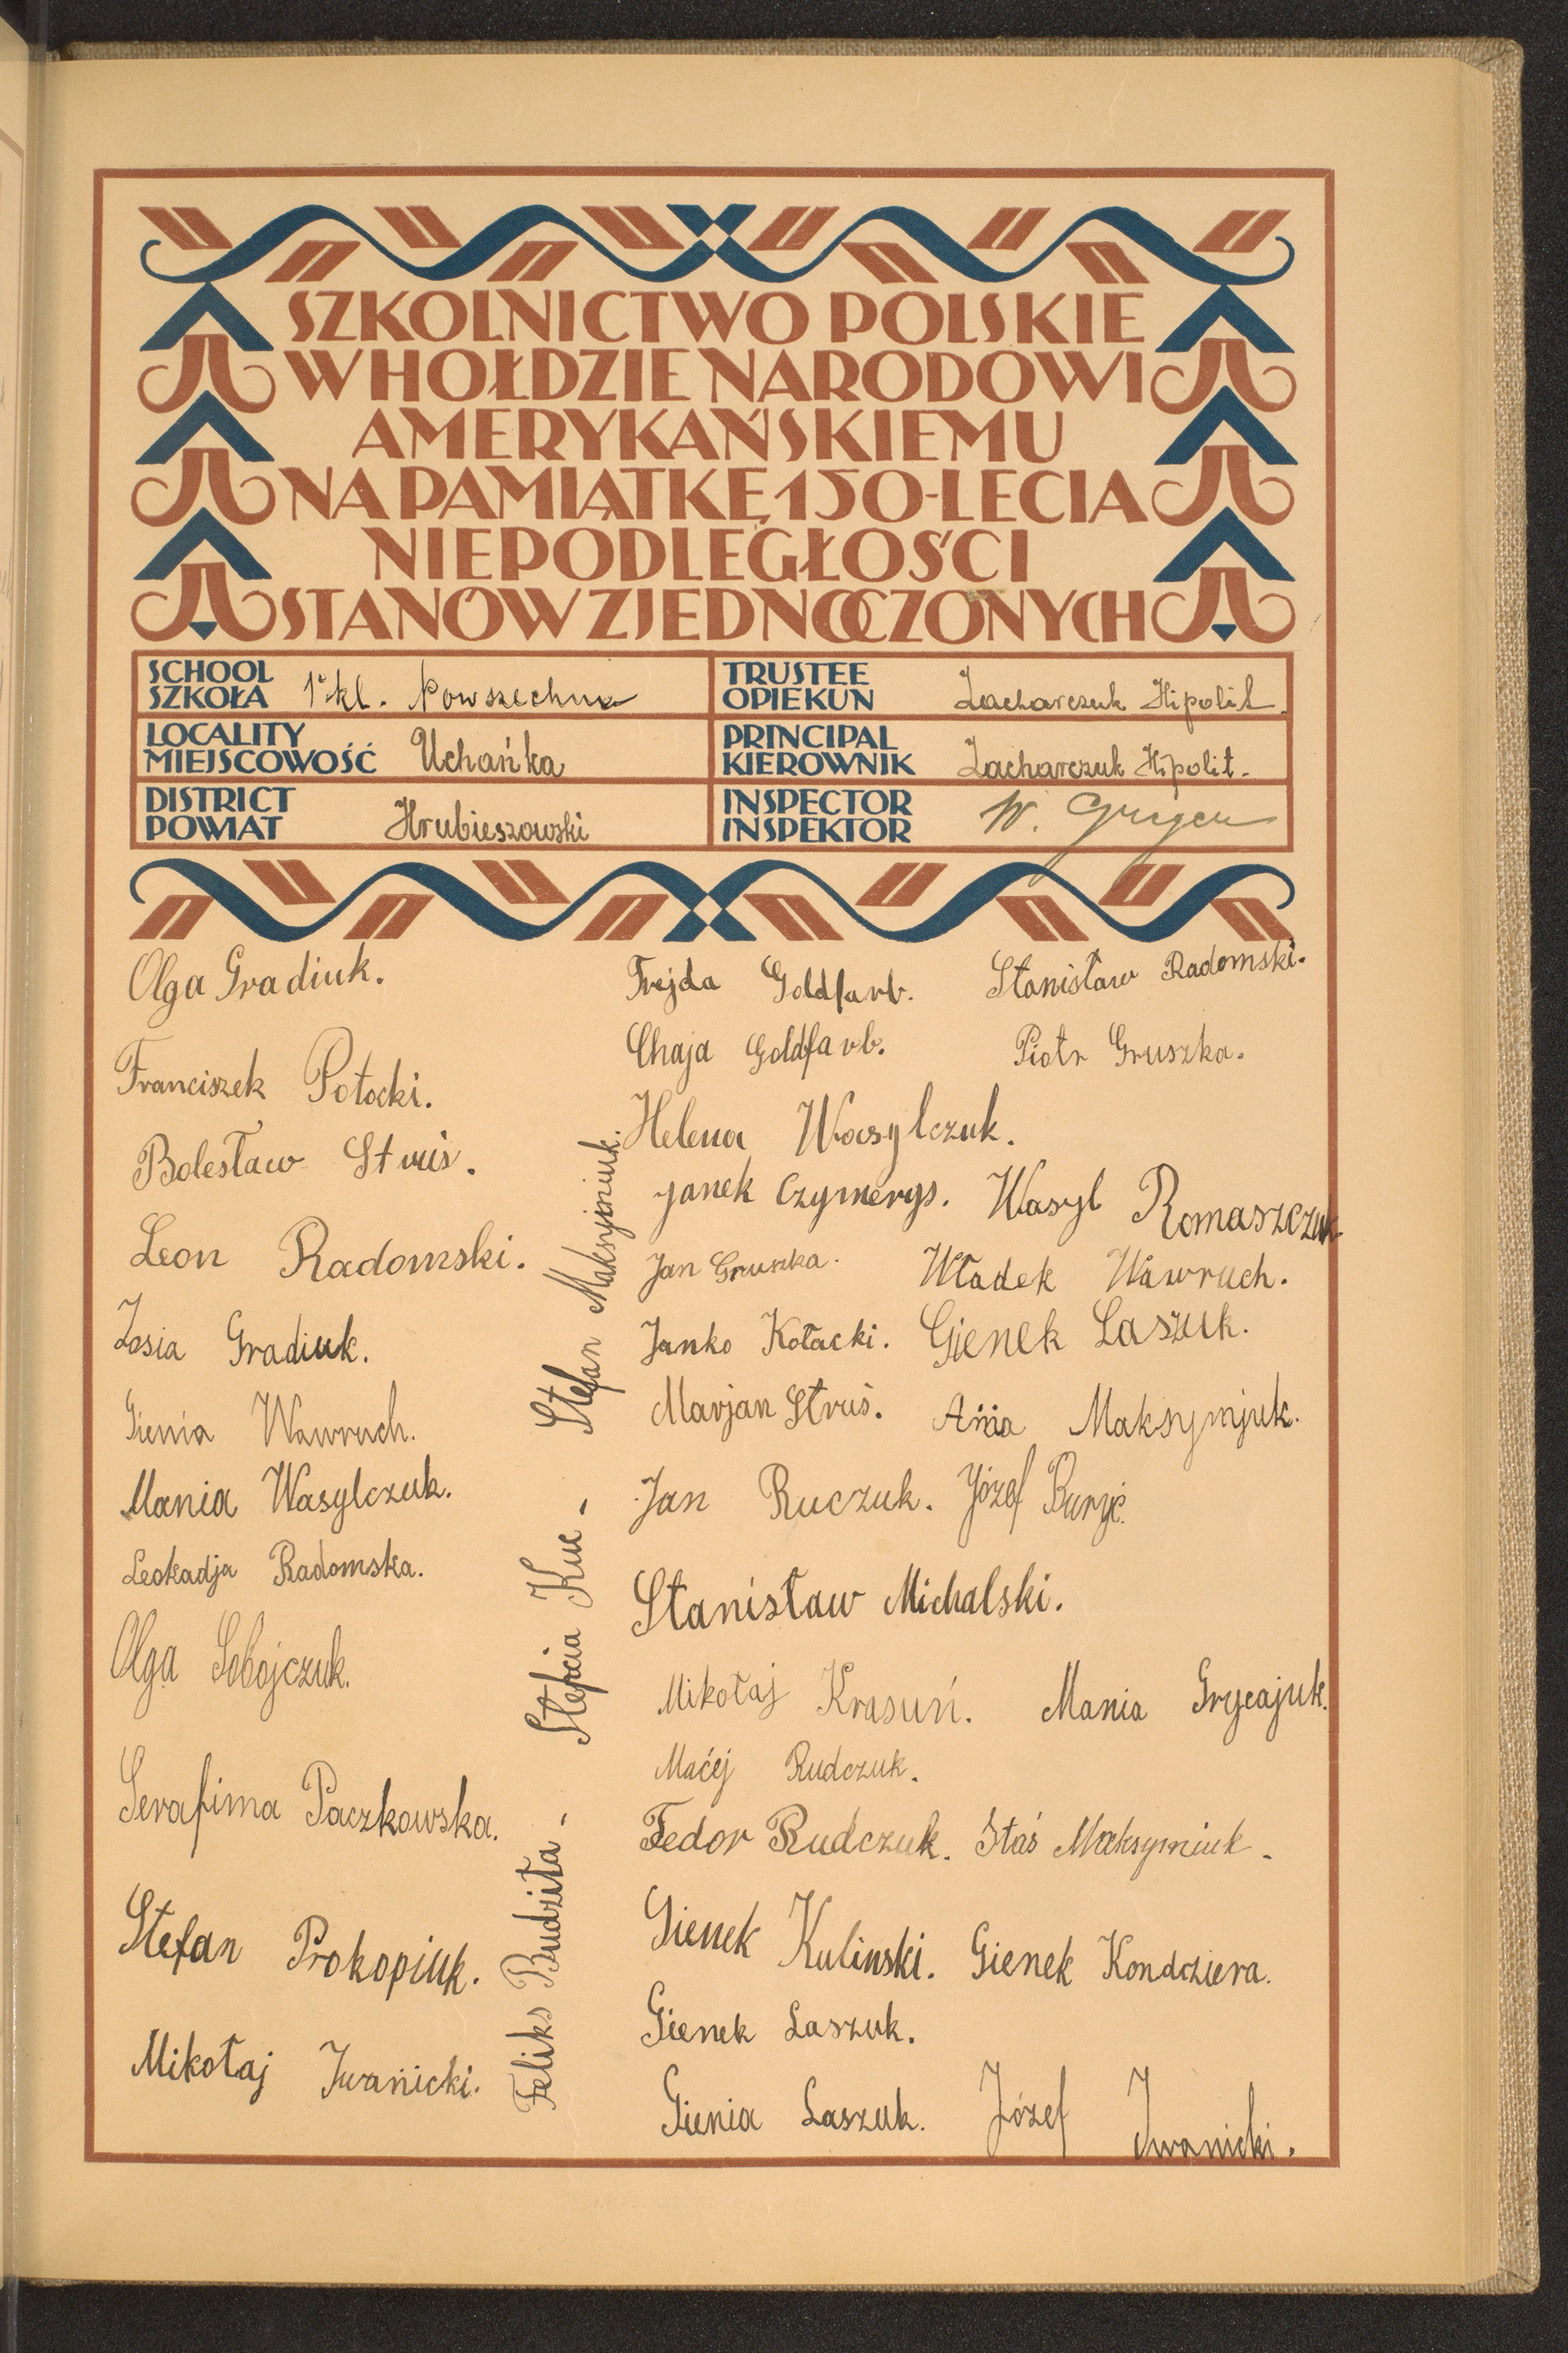 SZKOLNICTWO POLSKIE
W HOŁDZIE NARODOWI
AMERYKAŃSKIEMU
NA PAMIĄTKĘ 150-LECIA
NIEPODLEGŁOŚCI
STANÓW ZJEDNOCZONYCH
SCHOOL
SZKOŁA 1 kl. Powszechna
TRUSTEE
OPIEKUN Zacharczuk Hipolit.
LOCALITY
MIEJSCOWOŚĆ Uchańka
PRINCIPAL
KIEROWNIK Zacharczuk Hipolit.
DISTRICT
POWIAT Hrubieszowski
INSPECTOR
INSPEKTOR W.
Olga Gradiuk.
Franciszek Potocki.
Bolesław Struś.
Leon Radomski.
Zosia Gradiuk.
Gienia Wawruch.
Mania Wasylczuk.
Leokadja Radomska.
Olga Sobojczuk.
Serafima Paczkowska.
Stefan Prokopiuk.
Mikołaj Iwanicki.
Stefan Maksymiuk.
Stefcia Kuc.
Feliks Budziła.
Frejda Goldfarb. Stanisław Radomski.
Chaja Goldfarb. Piotr Gruszka.
Helena Wasylczuk.
Janek Czymerys. Wasyl Romaszczuk.
Jan Gruszka. Władek Wawruch.
Janko Kołacki. Gienek Laszuk.
Marjan Struś. Ania Maksymjuk.
Jan Ruczuk. Józef Buryć.
Stanisław Michalski.
Mikołaj Krasuń. Mania Grycajuk.
Maćej Rudczuk.
Fedor Rudczuk. Staś Maksymiuk.
Gienek Kulinski. Gienek Kondziera.
Gienek Laszuk.
Gienia Laszuk. Józef Iwanicki.